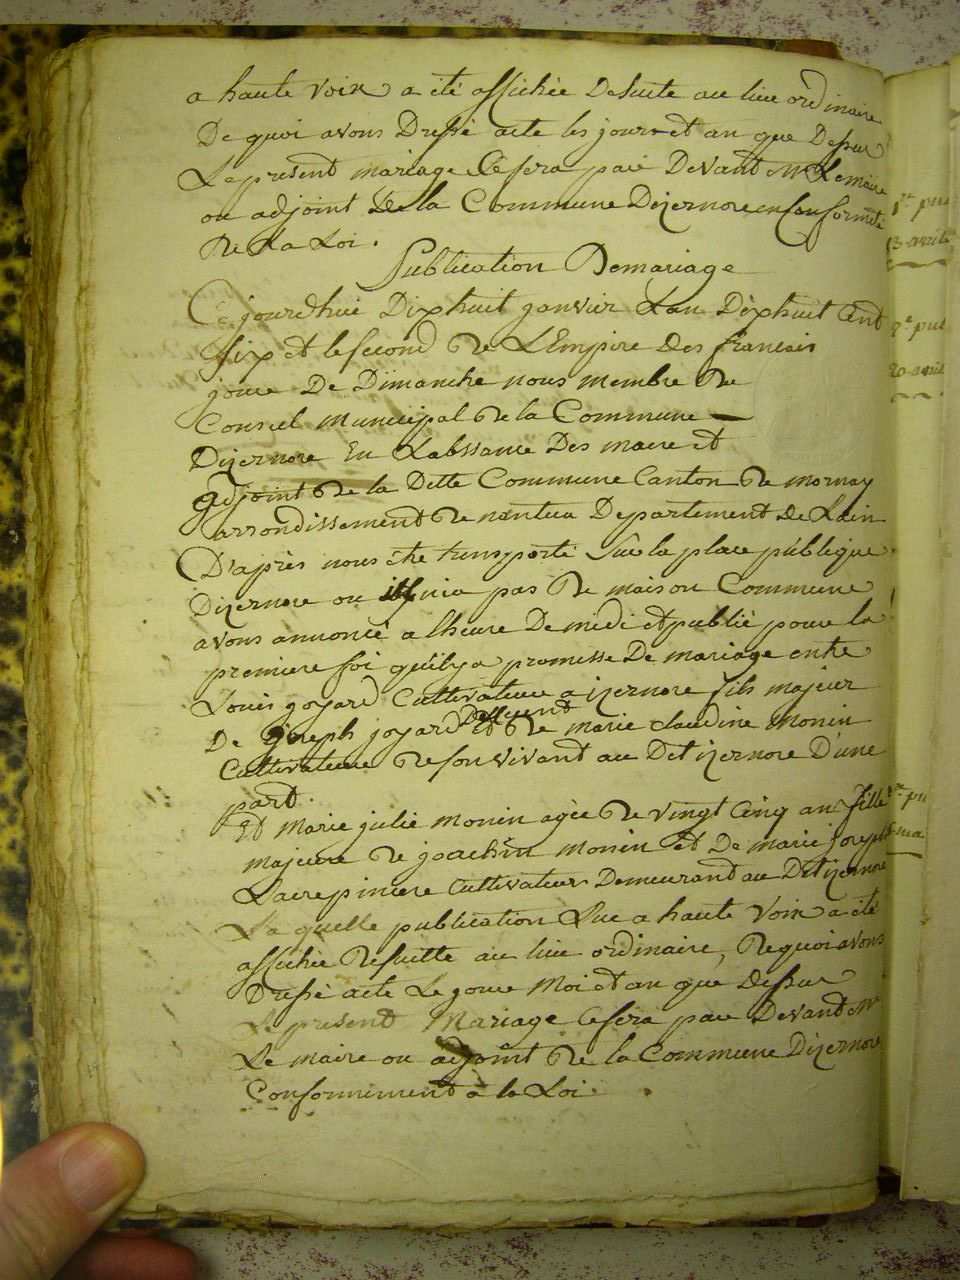 a haute voix a été affichée Desuite au lieu ordinaire
De quoi avons Dressé acte les jour et an que Dessus
Le present mariage Cefera par Devant Mr Lemaire
ou adjoint de la Commune Dizernore en Conformité
De La Loi.
Publication Demariage
Cejourdhui Dixhuit janvier Lan Dixhuit Cent
six et lesecond De LEmpire Des francais
jour De Dimanche nous membre De
Conseil municipal De la Commune
Dizernore En Labssance Des maire et
adjoint De la Dette Commune Canton De mornay
arrondissement De nantua Departement de Lain
D'après nous être transporté sur la place publique
Dizernore ou il nia pas De maison Commune
avons annoncé a lheure De midi et publié pour la
premiere foi quilya promesse De mariage entre
Louis goyard Cultivateur a izernore fils majeur
De joseph joyard Deffunt et De marie claudine monin
Cultivateur De son vivant au Det izernore D'une
part.
Et marie julie monin agée De vingt Cinq an fille
majeure De joachin monin et De marie joseph
Lacrepiniere Cultivateur Demeurant au Det izernore
La quelle publication Lue a haute voix a été
affichée Desuitte au lieu ordinaire, De quoi avons
Dressé acte Le jour Moi et an que Dessus
Le present Mariage Cefera par Devant Mr
Le maire ou adjoint De la Commune Dizernore
Conformement a la Loi.
1re pu
13 avril
2e pub
20 avril